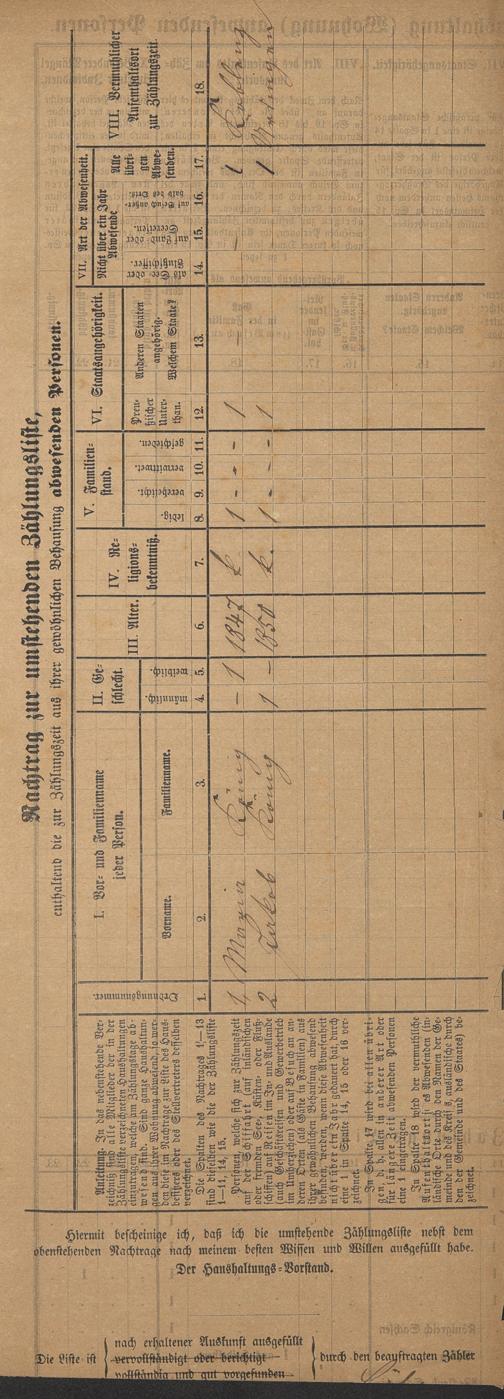 Nachtrag zur umstehenden Zählungsliste,
enthaltend die zur Zählungszeit aus ihrer gewöhnlichen Behausung abwesenden Personen.
Ordnungsnummer.
I. Vor- und Familienname
jeder Person.
Vorname.
Familienname.
II. Ge-
schlecht.
männlich.
weiblich.
III. Alter.
IV. Re-
ligions-
bekenntniß.
V. Familien-
stand.
ledig.
verehelicht.
verwittwet.
geschieden.
VI. Staatsangehörigkeit.
Preu-
ßischer
Unter-
than.
Anderen Staaten
angehörig.
Welchem Staate?
VII. Art der Abwesenheit.
Nicht über ein Jahr
Abwesende
als See- oder
Flußschiffer.
auf Land- oder
Seereisen.
auf Besuch außer-
halb des Orts.
Alle
übri-
gen
Abwe-
senden.
VIII. Vermuthlicher
Aufenthaltsort
zur Zählungszeit.
1. 2. 3. 4. 5. 6. 7. 8. 9. 10. 11. 12. 13. 14. 15. 16. 17. 18.
1 Maria König – 1 1847 k. 1 – – – 1 – – 1 Koblenz
2 Jakob König 1 – 1850 k. 1 – – – 1 1
Anleitung. In das nebenstehende Ver-
zeichniß sind alle Mitglieder der in der
Zählungsliste verzeichneten Haushaltungen
einzutragen, welche am Zählungstage ab-
wesend sind. Sind ganze Haushaltun-
gen aus ihrer Wohnung abwesend, so wer-
den diese im Nachtrage zur Liste des Haus-
besitzers oder des Stellvertreters desselben
verzeichnet.
Die Spalten des Nachtrages 1–13
sind dieselben wie die der Zählungsliste
1–11, 14, 15.
Personen, welche sich zur Zählungszeit
auf der Schiffahrt (auf inländischen
oder fremden See-, Küsten- oder Fluß-
schiffen) auf Reisen im In- und Auslande
(auch Geschäftsreisen und Gewerbebetrieb
im Umherziehen) oder auf Besuch an an-
deren Orten (als Gäste in Familien) aus
ihrer gewöhnlichen Behausung abwesend
befinden, werden, wenn diese Abwesenheit
nicht über ein Jahr gedauert hat, durch
eine 1 in Spalte 14, 15 oder 16 ver-
zeichnet.
In Spalte 17 wird bei allen übri-
gen, d. h. allen in anderer Art oder
für längere Zeit abwesenden Personen
eine 1 eingetragen.
In Spalte 18 wird der vermuthliche
Aufenthaltsort des Abwesenden (in-
ländische Orte durch den Namen der Ge-
meinde und des Kreises, ausländische durch
den der Gemeinde und des Staates) be-
zeichnet.
Hiermit bescheinige ich, daß ich die umstehende Zählungsliste nebst dem
obenstehenden Nachtrage nach meinem besten Wissen und Willen ausgefüllt habe.
Der Haushaltungs-Vorstand.
Die Liste ist
nach erhaltener Auskunft ausgefüllt
vervollständigt oder berichtigt
vollständig und gut vorgefunden
durch den beauftragten Zähler